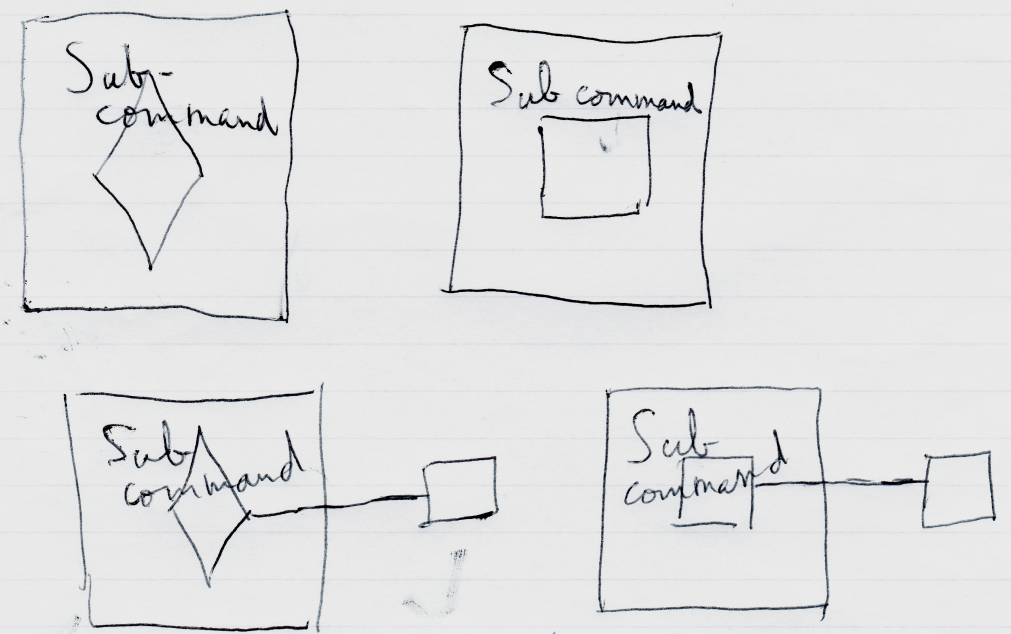 Sub-
command
Sub command
Sub
command
Sub
command